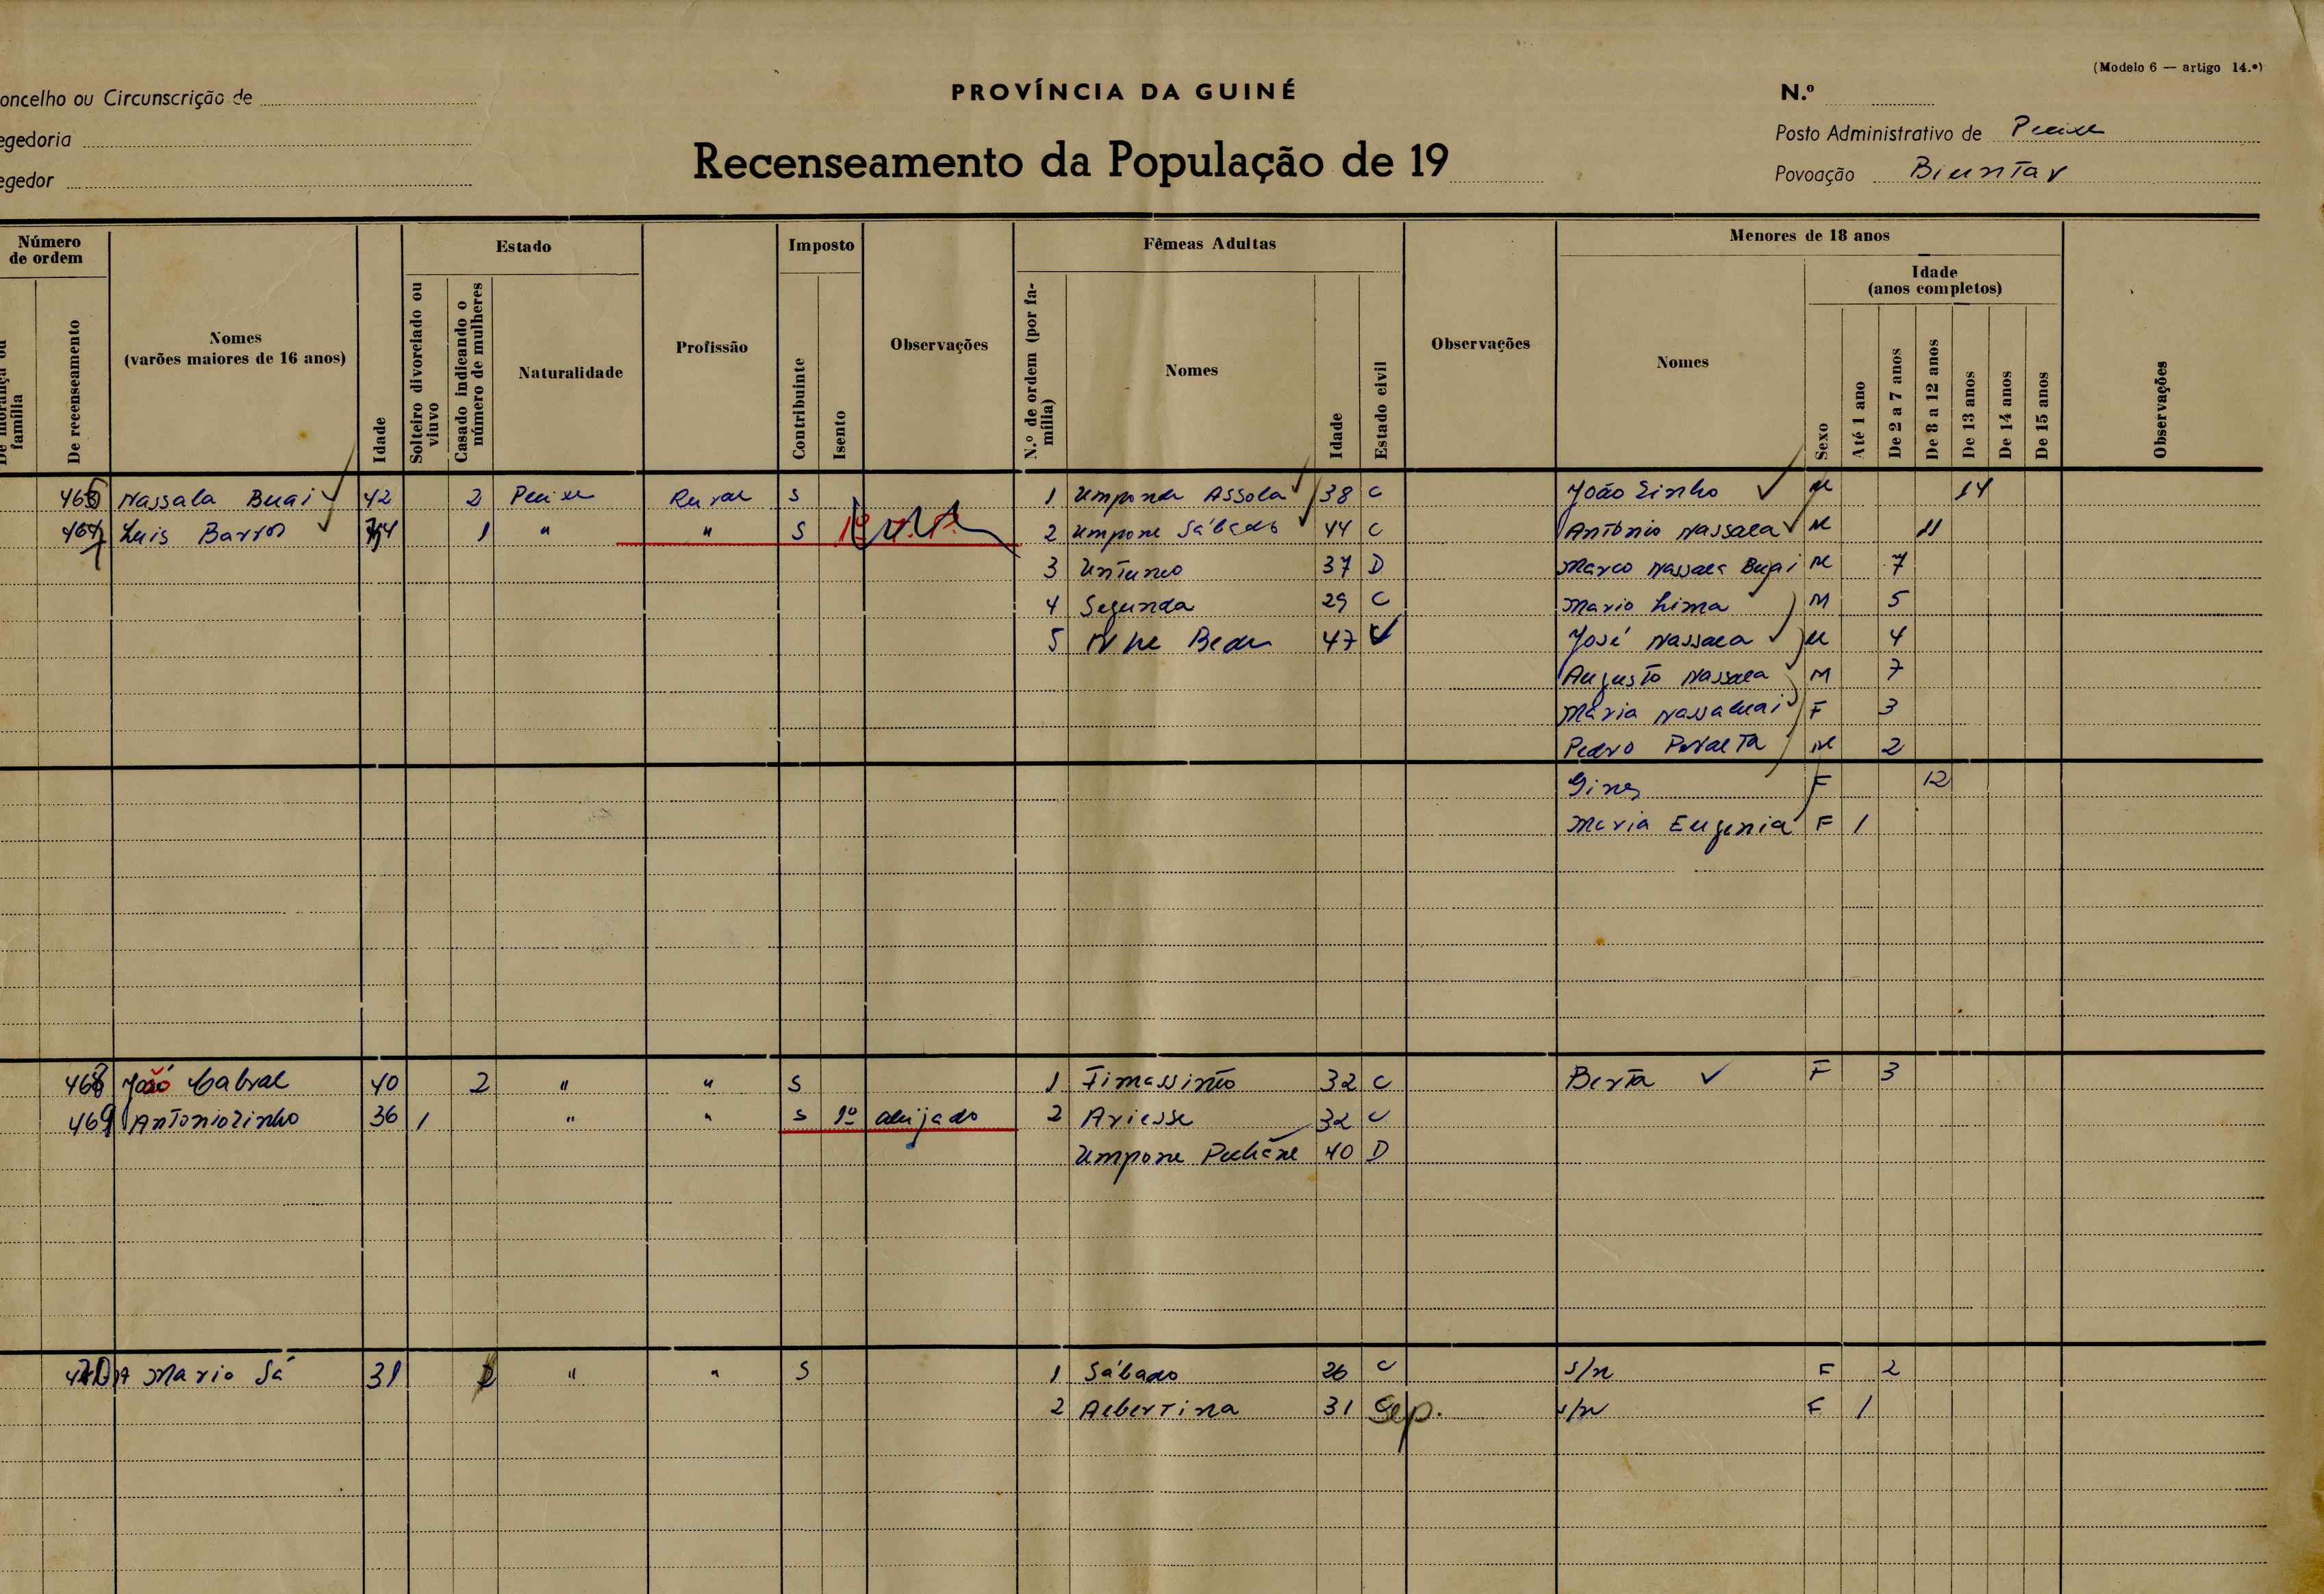 (Modelo 6 — artigo 14.º)
oncelho ou Circunscrição de
PROVÍNCIA DA GUINÉ
N.º
egedoria
Posto Administrativo de Pecixe
Recenseamento da População de 19
egedor
Povoação Biuntar
Número de ordem
Estado
Imposto
Fêmeas Adultas
Menores de 18 anos
Idade (anos completos)
família
De recenseamento
Nomes (varões maiores de 16 anos)
Idade
Solteiro divorciado ou viuvo
Casado indicando o número de mulheres
Naturalidade
Profissão
Contribuinte
Isento
Observações
N.º de ordem (por família)
Nomes
Idade
Estado civil
Observações
Nomes
Sexo
Até 1 ano
De 2 a 7 anos
De 8 a 12 anos
De 13 anos
De 14 anos
De 15 anos
Observações
Nassala Buai 42 2 Pecixe Rural S 1 Umponda Assola 38 C João Zinho M 14
Luis Barros 1 " " S 2 Umpone Sábado 44 C António Nassala M 11
3 Untunio 37 D Marco Nassala Buai M 7
4 Segunda 29 C Mario Lima M 5
5 47 José Nassala M 4
Augusto Nassala M 7
Maria F 3
Pedro Peralta M 2
F 12
Maria Eugenia F 1
468 João Cabral 40 2 " " S 1 Timassinto 32 C Berta F 3
469 Antoniozinho 36 1 " " S 1º aleijado 2 Ariesse 32 C
Umpone 40 D
Mario Sá 31 " " S 1 Sábado 26 C s/n F 2
2 Albertina 31 Sep. s/n F 1